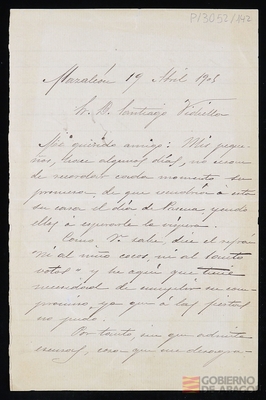 P/3052/142
Mazaleón 19 Abril 1905
Sr. D. Santiago Vidiella
Mi querido amigo: Mis peque-
ños, hace algunos días, no cesan
de recordar cada momento su
promesa, de que vendrá á esta
su casa el día de Pascua yendo
ellos á esperarle la víspera.
Como V. sabe, dice el refrán
"Ni al niño cocos, ni al santo
votos", y he aquí que tiene
necesidad de cumplir su com-
promiso, ya que á las fiestas
no pudo.
Por tanto, sin que admita
excusas, creo que me
GOBIERNO
DE ARAGON